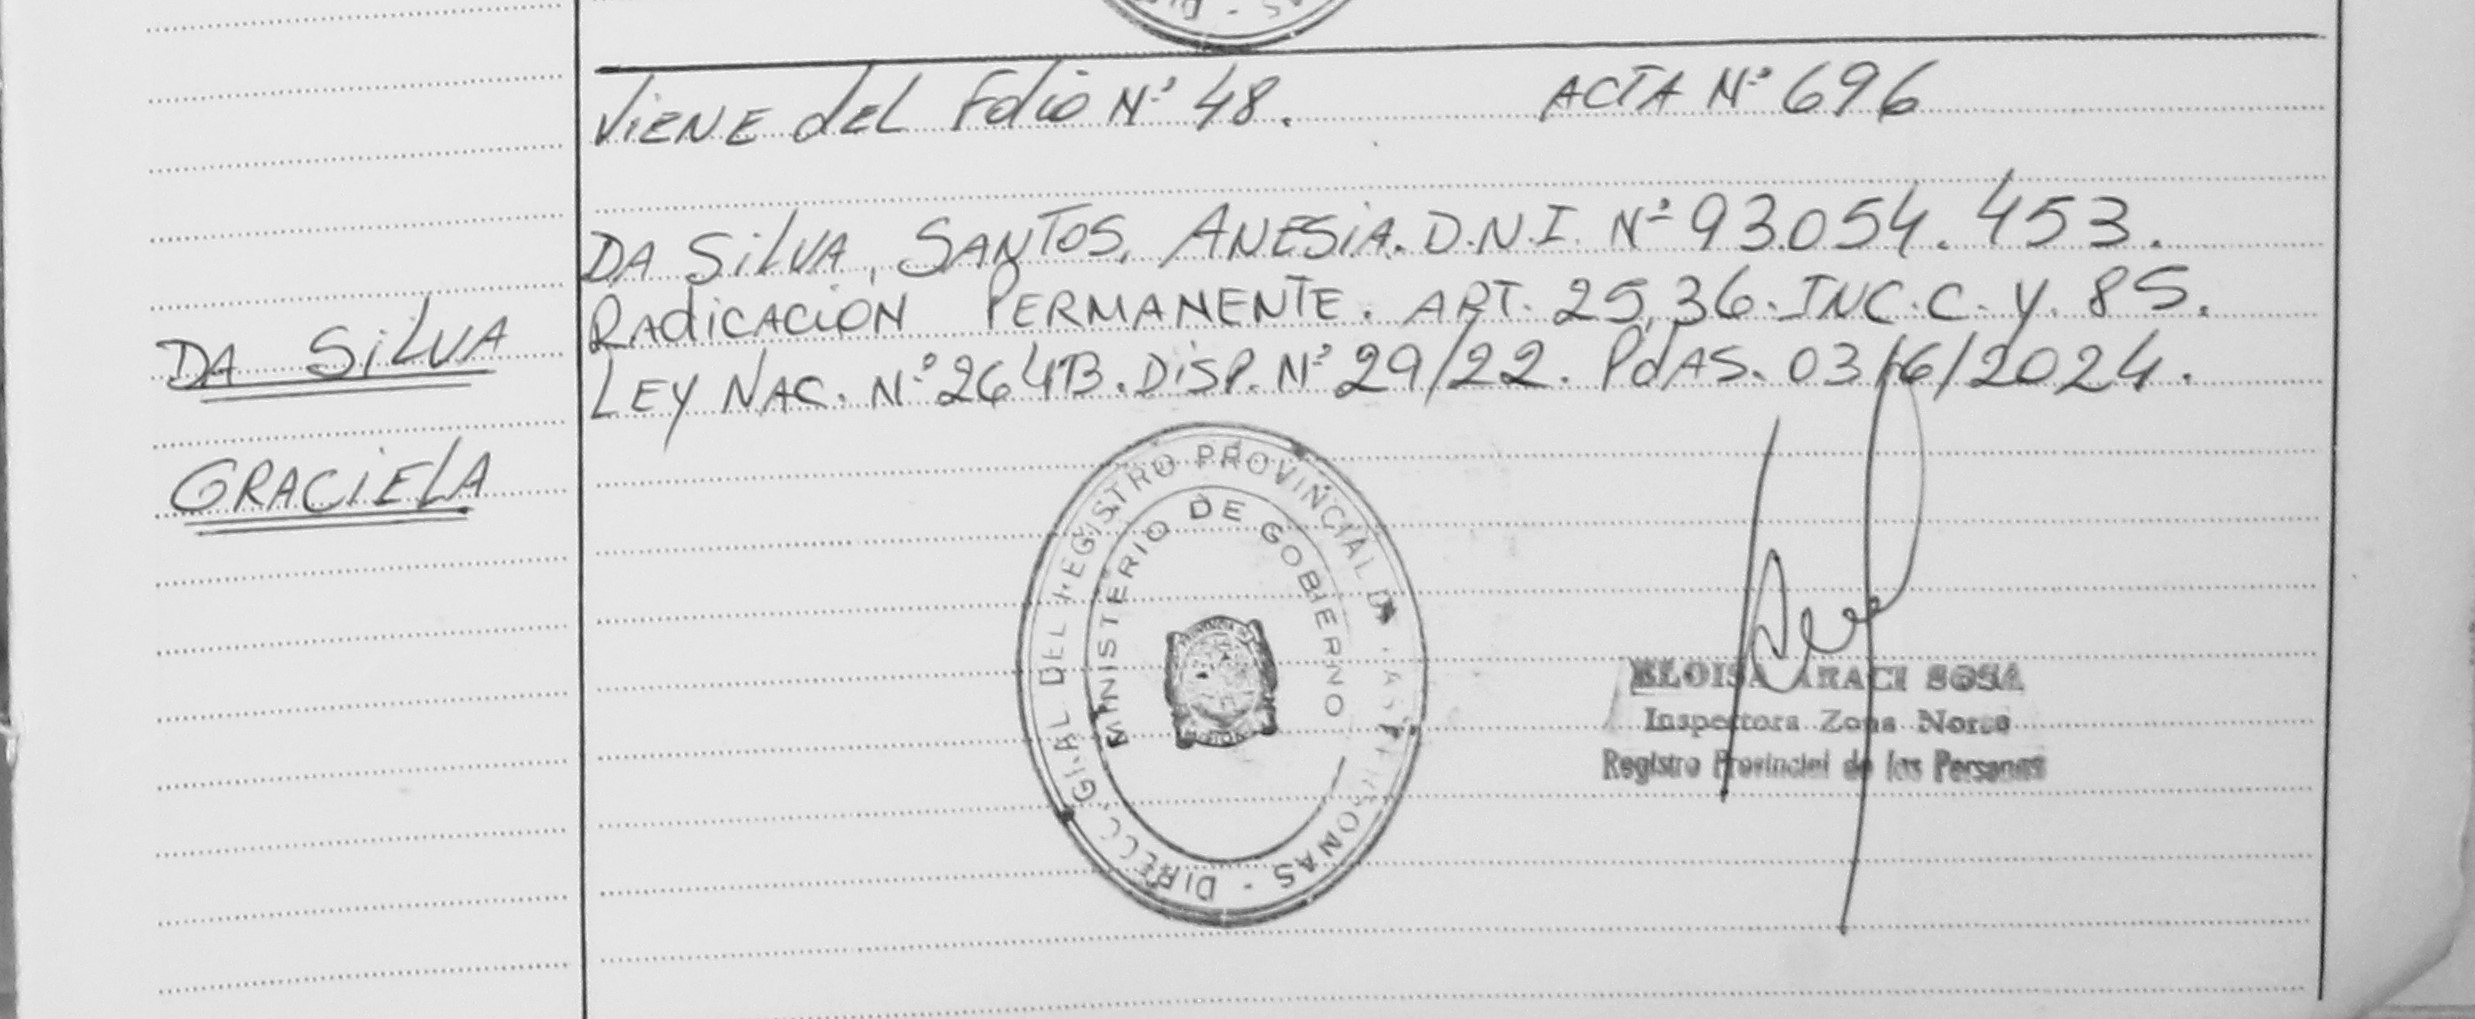 Viene del Folio Nº 48. ACTA Nº 696
DA SILVA, SANTOS, ANESIA. D.N.I. Nº 93.054.453.
RADICACION PERMANENTE. ART. 25,36. INC. C. Y. 85.
LEY NAC. Nº 26413. DISP. Nº 29/22. PdAS. 03/6/2024.
DA SILVA
GRACIELA
DIRECC. GRAL DEL REGISTRO PROVINCIAL DE LAS PERSONAS -
MINISTERIO DE GOBIERNO
ELOISA ARACI SOSA
Inspectora Zona Norte
Registro Provincial de las Personas